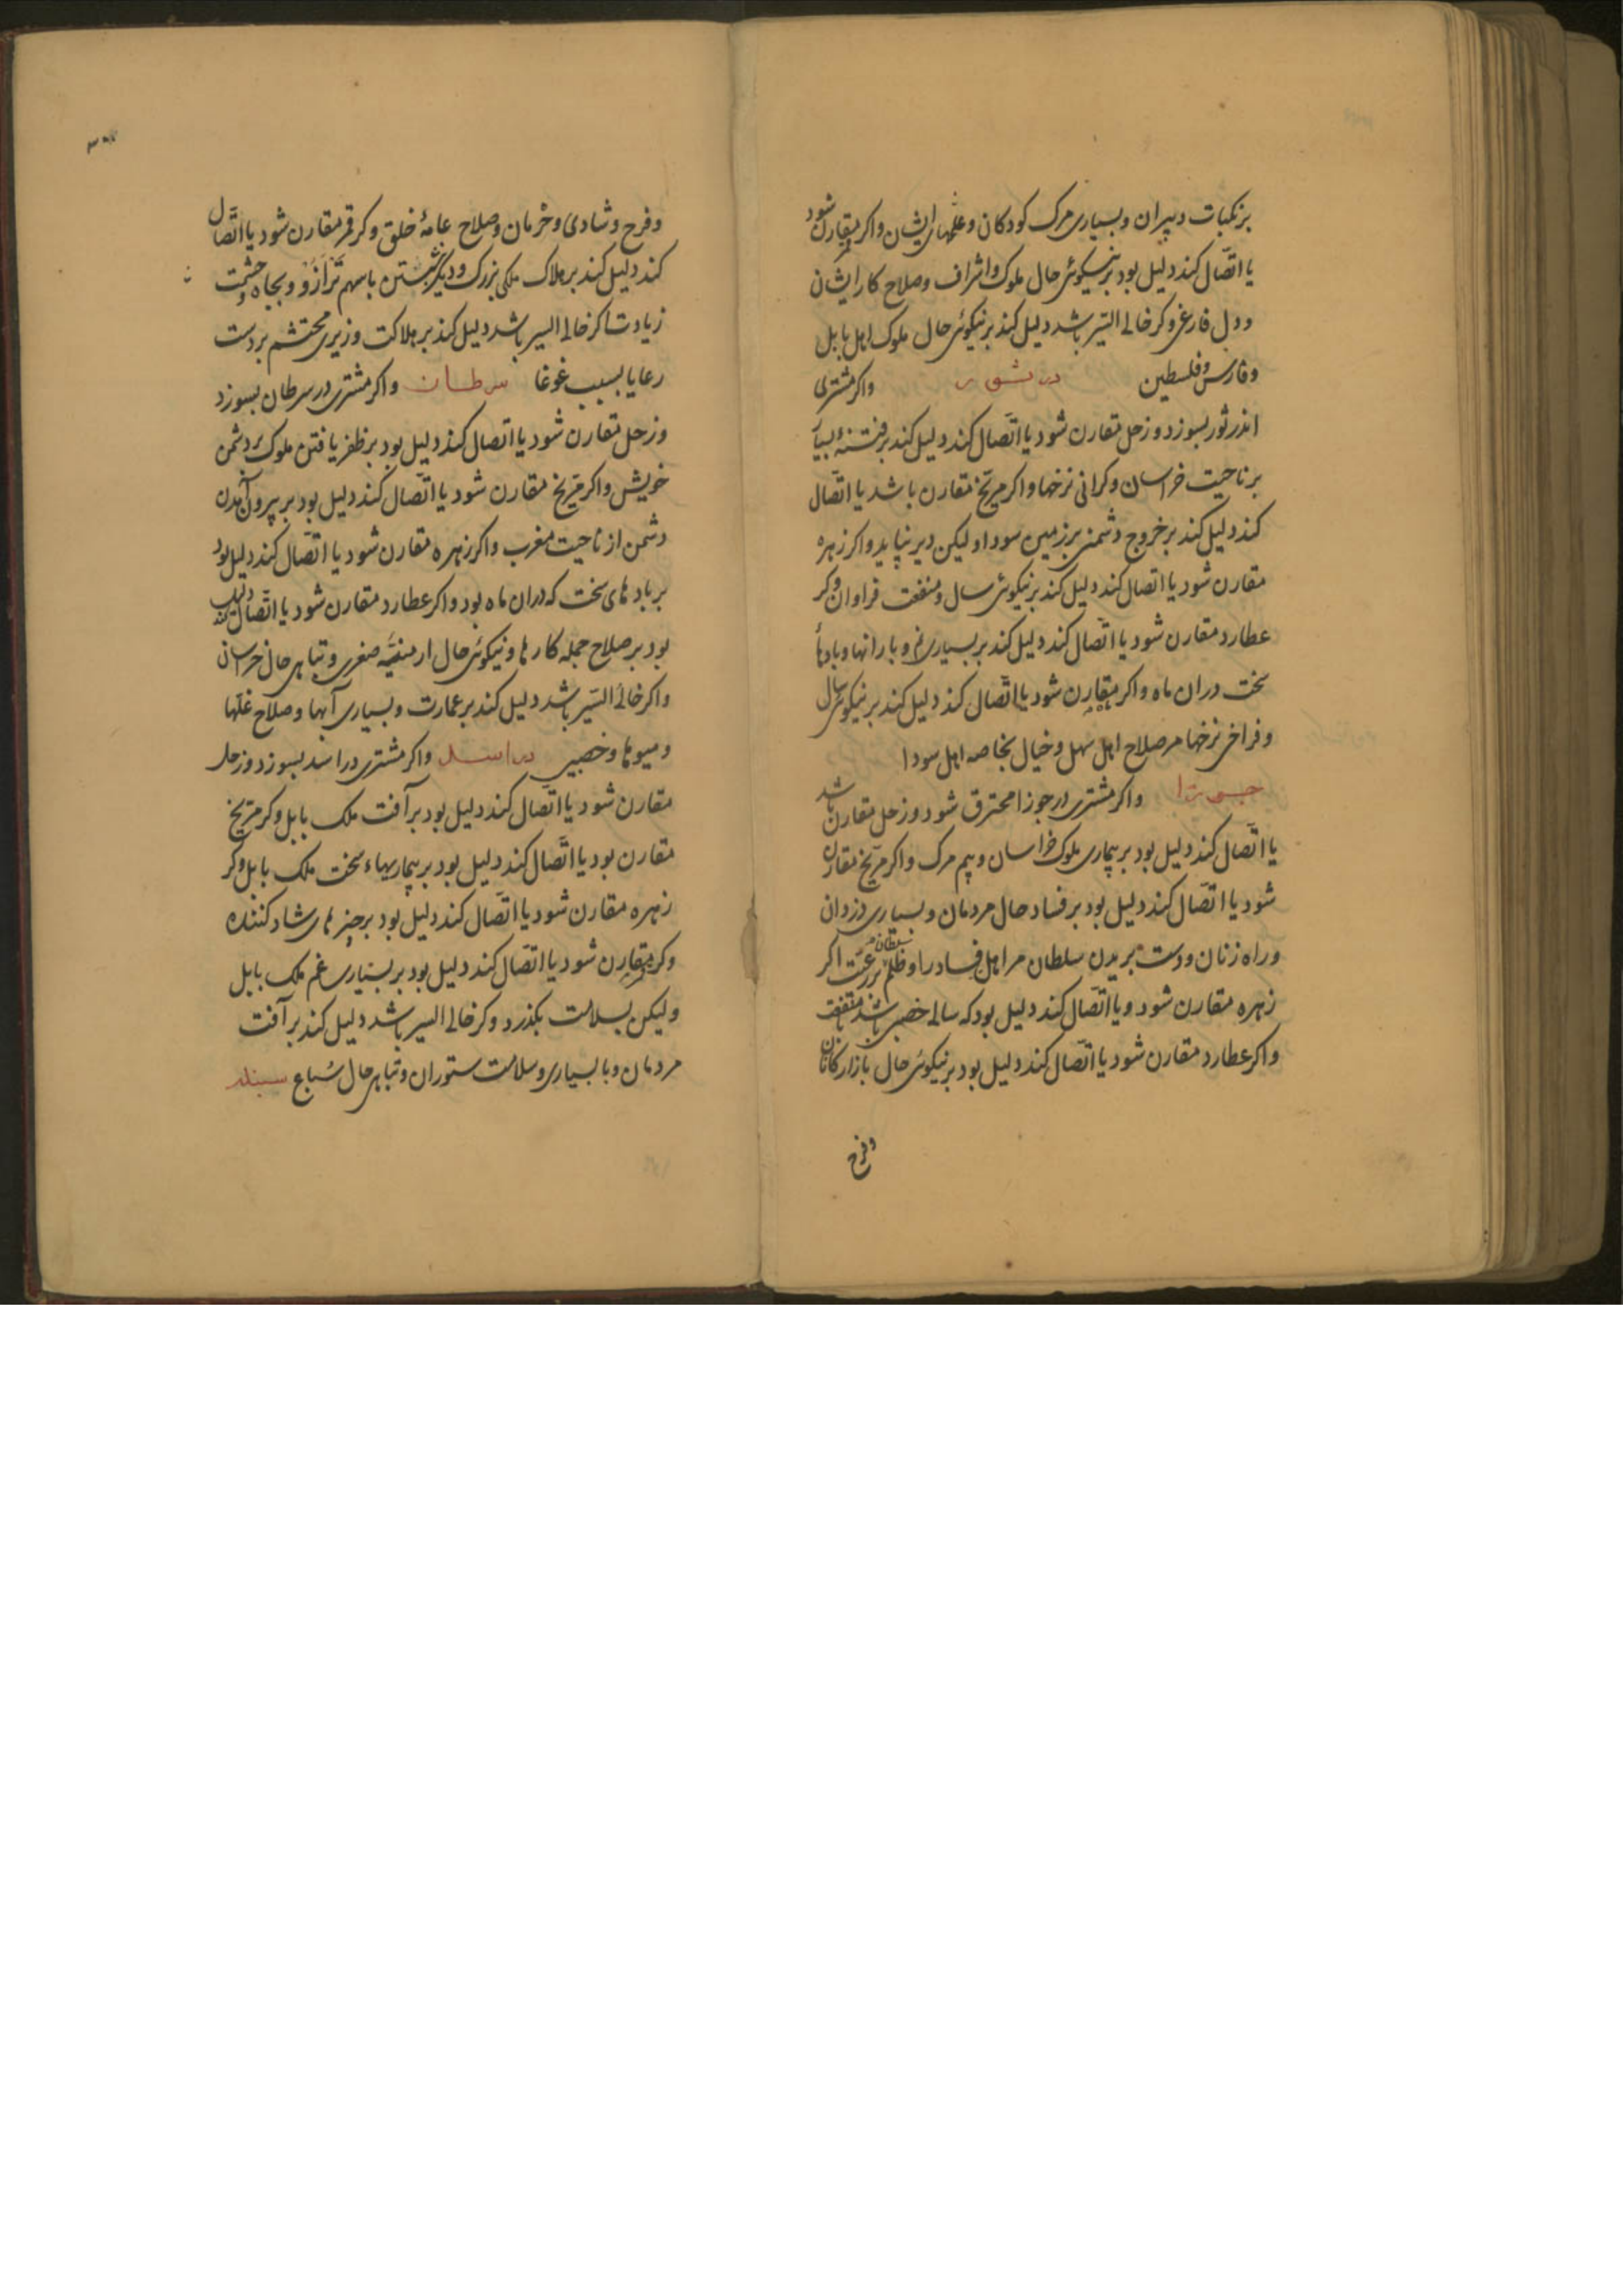 بر نکبات دبیران و بسیاری مرک کودکان و غمهای ایشان و اکر قمر مقارن شود
یا اتّصال کند دلیل بود بر نیکوئی حال ملوک و اشراف و صلاح کار ایشان
و دل فارغ و کر خالی السّیر باشد دلیل کند بر نیکوئی حال ملوک اهل بابل
و فارس و فلسطین در ثور واکر مشتری
اندر ثور بسوزد و زحل مقارن شود یا اتّصال کند دلیل کند بر فتنهٔ بسیار
بر ناحیت خراسان و کرانی نرخها و اکر مرّیخ مقارن باشد یا اتّصال
کند دلیل کند بر خروج دشمنی بر زمین سواد و لیکن دیر نپاید و اکر زهره
مقارن شود یا اتصال کند دلیل کند بر نیکوئی سال و منفعت فراوان و کر
عطارد مقارن شود یا اتّصال کند دلیل کند بر بسیاری نم و بارانها و بادهأ
سخت دران ماه و اکر قمر مقارن شود یا اتّصال کند دلیل کند بر نیکوئی سال
و فراخی نرخها مر صلاح اهل سهل و جبال بخاصه اهل سودا
جوزا واکر مشتری در جوزا محترق شود و زحل مقارن باشد
یا اتّصال کند دلیل بود بر بیماری ملوک خراسان و بیم مرک و اکر مرّیخ مقارن
شود یا اتّصال کند دلیل بود بر فساد حال مردمان و بسیاری دزدان
و راه زنان و دست بریدن سلطان مر اهل فساد را و ظلم سلطان بر رعیّت اکر
زهره مقارن شود و یا اتّصال کند دلیل بود که سالی خصیب باشد با منفعت
و اکر عطارد مقارن شود یا اتّصال کند دلیل بود بر نیکوئی حال بازارکانان
وفرح
وفرح و شادی و خرمان و صلاح عامهٔ خلق و کر قمر مقارن شود یا اتّصال
کند دلیل کند بر هلاک ملکی بزرک و دیکر نشستن باسهم ترازو و بجاه و حشمت
زیادت اکر خالی السیر باشد دلیل کند بر هلاکت وزیری محتشم بر دست
رعایا بسبب غوغا سرطان واکر مشتری در سرطان بسوزد
و زحل مقارن شود یا اتصال کند دلیل بود بر ظفر یافتن ملوک بر دشمن
خویش و اکر مرّیخ مقارن شود یا اتّصال کند دلیل بود بر بیرون آمدن
دشمن از ناحیت مغرب و اکر زهره مقارن شود یا اتّصال کند دلیل بود
بر بادهای سخت که دران ماه بود و اکر عطارد مقارن شود یا اتّصال کند دلیل
بود بر صلاح جمله کارها و نیکوئی حال ارمنیّه صغری و تباهی حال خراسان
و اکر خالی السّیر باشد دلیل کند بر عمارت و بسیاری آبها و صلاح غلّها
و میوها و خصبی در اسد واکر مشتری در اسد بسوزد و زحل
مقارن شود یا اتّصال کند دلیل بود بر آفت ملک بابل و کر مرّیخ
مقارن بود یا اتّصال کند دلیل بود بر بیماریهاء سخت ملک بابل و کر
زهره مقارن شود یا اتّصال کند دلیل بود بر چیزهای شاد کننده
و کر قمر مقارن شود یا اتّصال کند دلیل بود بر بسیاری غم ملک بابل
و لیکن بسلامت بکذرد و کر خالی السیر باشد دلیل کند بر آفت
مردمان و با بسیاری و سلامت ستوران و تباهی حال سُباع سنبله